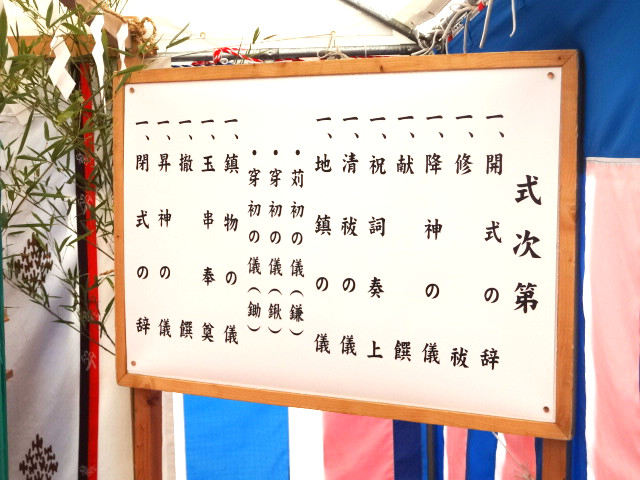 式次第
一、開式の辞
一、修祓
一、降神の儀
一、献饌
一、祝詞奏上
一、清祓の儀
一、地鎮の儀
・苅初の儀（鎌）
・穿初の儀（鍬）
・穿初の儀（鋤）
一、鎮物の儀
一、玉串奉奠
一、撤饌
一、昇神の儀
一、閉式の辞